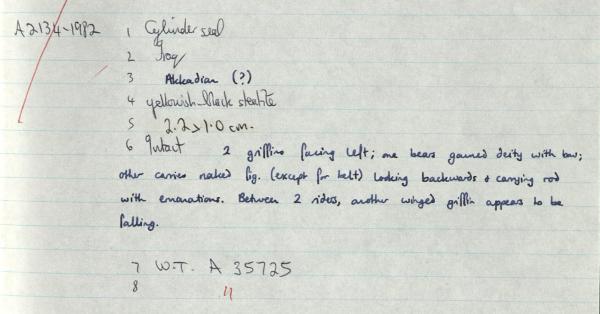 A 2134-1982 1 Cylinder seal
2 Iraq
3 Akkadian (?)
4 yellowish-black steatite
5 2.2 > 1.0 cm.
6 Intact 2 griffins facing left; one bears gowned deity with bow;
other carries naked fig. (except for belt) looking backwards & carrying rod
with emanations. Between 2 riders, another winged griffin appears to be
falling.
7 W.T. A 35725
8 11